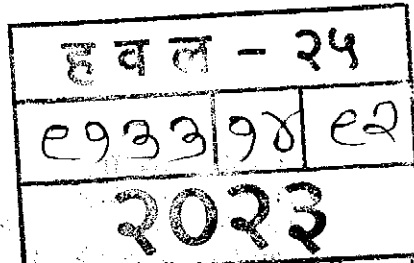 हवल - २५
९१३३ १४ ९२
२०२३